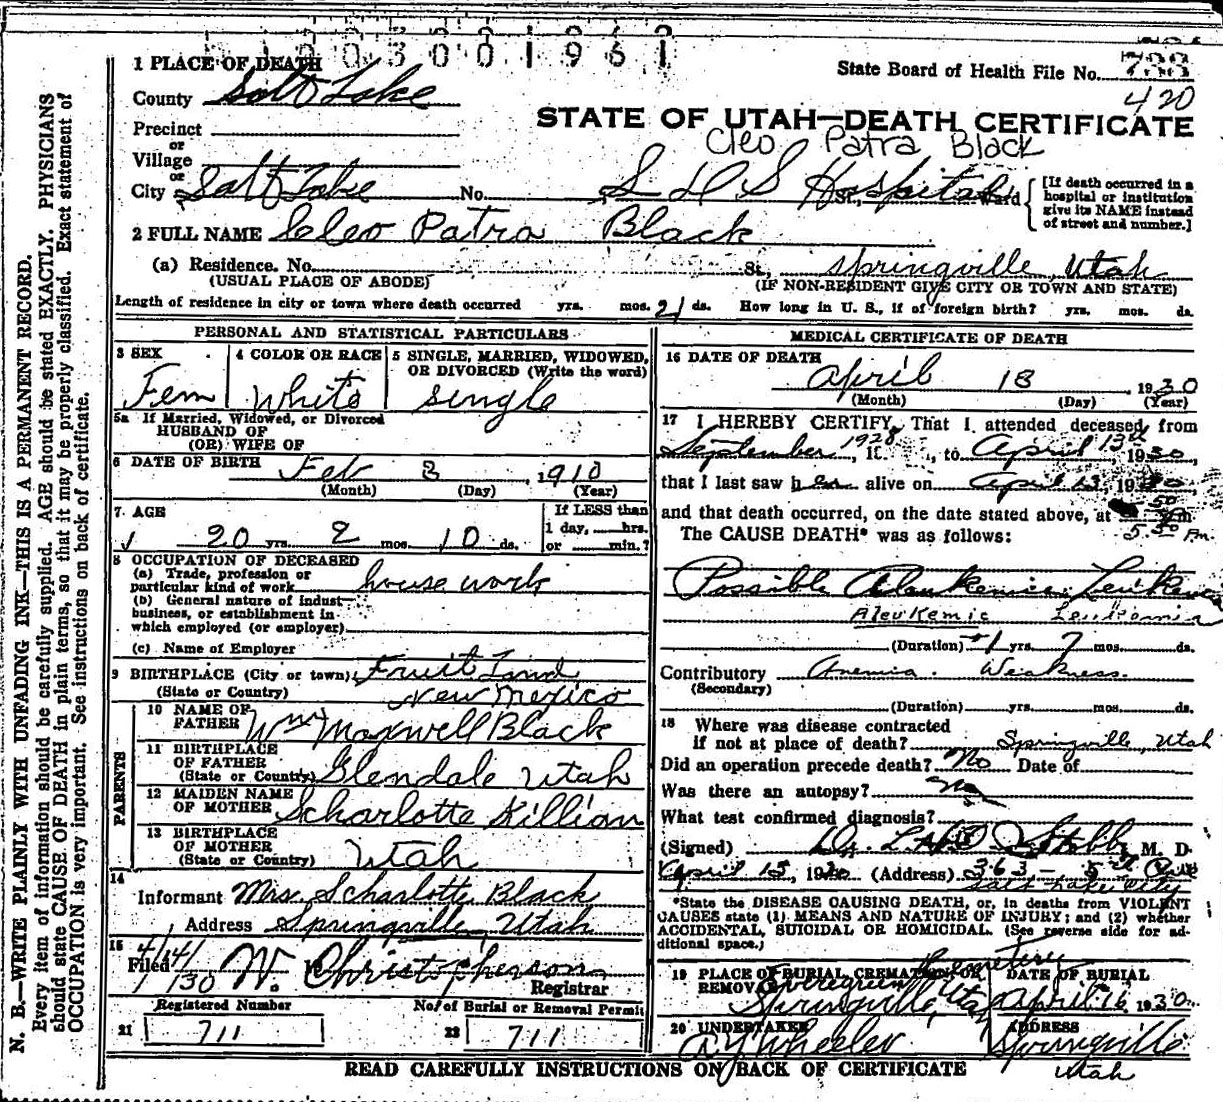 1003001961
1 PLACE OF DEATH
State Board of Health File No. 733
County Salt Lake
420
STATE OF UTAH—DEATH CERTIFICATE
Precinct
or
Cleo Patra Black
Village
or
City Salt Lake No. L D S Hospital St., Ward
[If death occurred in a
hospital or institution
give its NAME instead
of street and number.]
2 FULL NAME Cleo Patra Black
(a) Residence. No. St., Springville, Utah
(USUAL PLACE OF ABODE) (IF NON-RESIDENT GIVE CITY OR TOWN AND STATE)
Length of residence in city or town where death occurred yrs. mos. 21 ds. How long in U. S., if of foreign birth? yrs. mos. ds.
PERSONAL AND STATISTICAL PARTICULARS
3 SEX
Fem
4 COLOR OR RACE
White
5 SINGLE, MARRIED, WIDOWED,
OR DIVORCED (Write the word)
single
5a If Married, Widowed, or Divorced
HUSBAND OF
(OR) WIFE OF
6 DATE OF BIRTH Feb 3, 1910
(Month) (Day) (Year)
7 AGE
20 yrs. 2 mos. 10 ds.
If LESS than
1 day, hrs.
or min.?
8 OCCUPATION OF DECEASED
(a) Trade, profession or
particular kind of work house work
(b) General nature of indust-
business, or establishment in
which employed (or employer)
(c) Name of Employer
9 BIRTHPLACE (City or town) Fruit Land
(State or Country) New Mexico
PARENTS
10 NAME OF
FATHER Wm Maxwell Black
11 BIRTHPLACE
OF FATHER
(State or Country) Glendale Utah
12 MAIDEN NAME
OF MOTHER Scharlotte Killian
13 BIRTHPLACE
OF MOTHER
(State or Country) Utah
14
Informant Mrs. Scharlotte Black
Address Springville, Utah
15
Filed 4/14/30 W. Christopherson
Registrar
Registered Number
21 711
No. of Burial or Removal Permit
22 711
MEDICAL CERTIFICATE OF DEATH
16 DATE OF DEATH
April 13, 1930
(Month) (Day) (Year)
17 I HEREBY CERTIFY, That I attended deceased from
September 1928, to April 13th 1930,
that I last saw her alive on April 13, 1930
and that death occurred, on the date stated above, at m
5:50 Pm.
The CAUSE DEATH* was as follows:
Possible Aleukemic Leukemia
Aleukemic Leukemia
(Duration) 1 yrs. 7 mos. ds.
Contributory Anemia. Weakness.
(Secondary)
(Duration) yrs. mos. ds.
18 Where was disease contracted
if not at place of death? Springville, Utah
Did an operation precede death? No Date of
Was there an autopsy? No
What test confirmed diagnosis?
(Signed) Dr. Stebb M. D.
April 15, 1930 (Address) 363 - 5th Ave
Salt Lake City
*State the DISEASE CAUSING DEATH, or, in deaths from VIOLENT
CAUSES state (1) MEANS AND NATURE OF INJURY; and (2) whether
ACCIDENTAL, SUICIDAL OR HOMICIDAL. (See reverse side for ad-
ditional space.)
19 PLACE OF BURIAL, CREMATION OR
REMOVAL
Evergreen Cemetery
Springville, Utah
DATE OF BURIAL
April 16, 1930
20 UNDERTAKER
A Y Wheeler
ADDRESS
Springville
Utah
READ CAREFULLY INSTRUCTIONS ON BACK OF CERTIFICATE
N. B.—WRITE PLAINLY WITH UNFADING INK—THIS IS A PERMANENT RECORD.
Every item of information should be carefully supplied. AGE should be stated EXACTLY. PHYSICIANS
should state CAUSE OF DEATH in plain terms, so that it may be properly classified. Exact statement of
OCCUPATION is very important. See instructions on back of certificate.